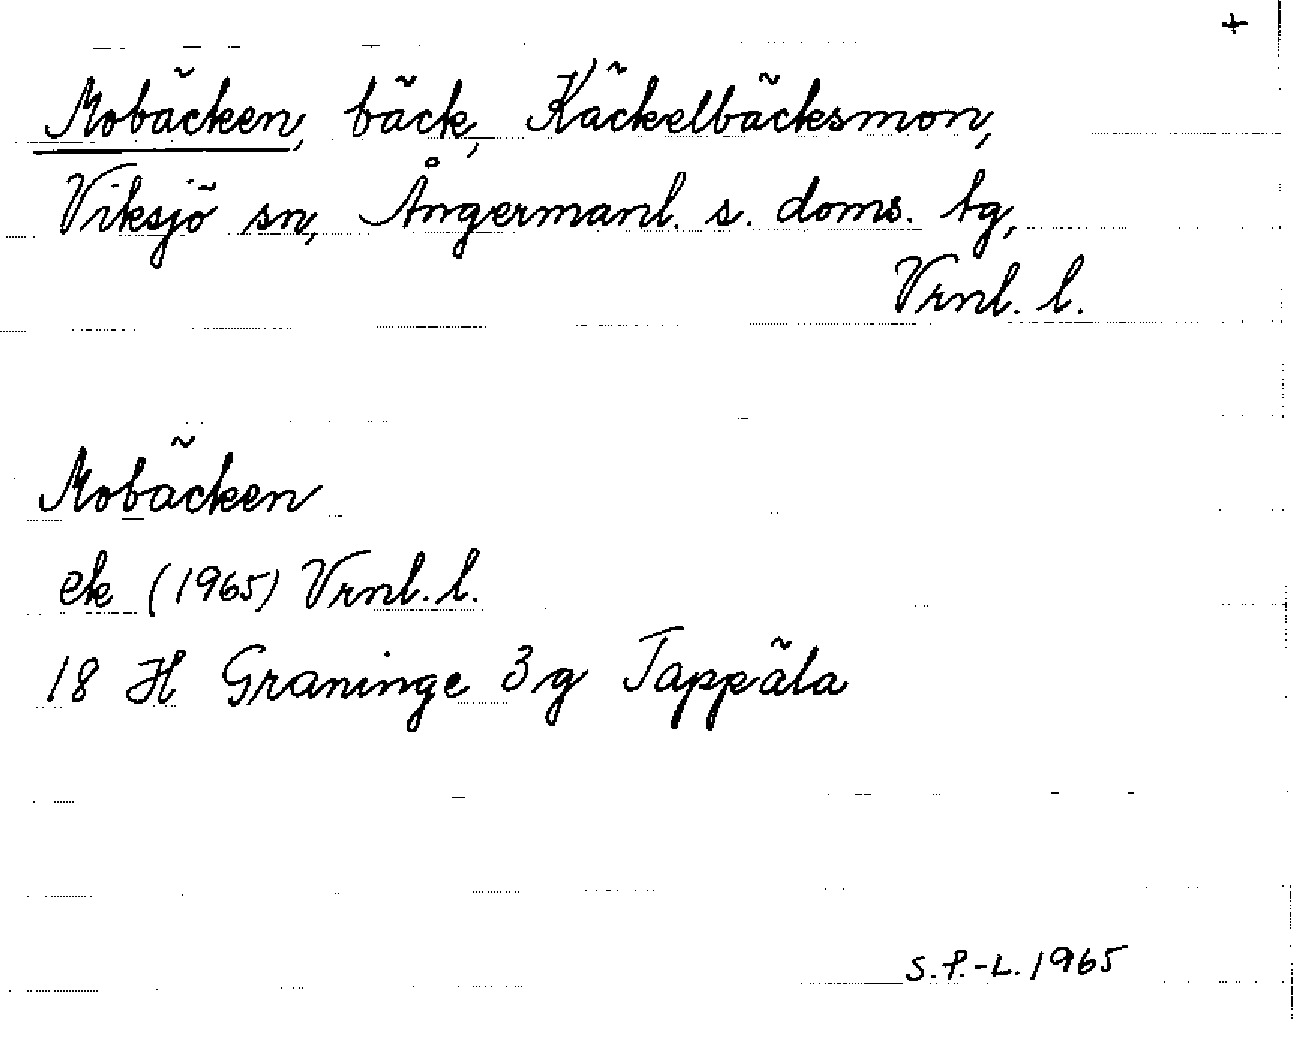 +
Mobäcken, bäck, Käckelbäcksmon,
Viksjö sn, Ångermanl. s. doms. tg,
Vrnl. l.
Mobäcken
ek (1965) Vrnl. l.
18 H Graninge 3 g Tappäla
S. P.-L. 1965